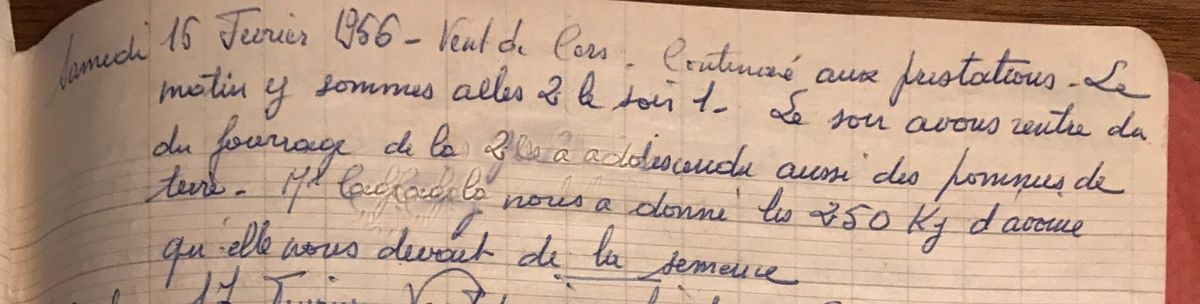 Samedi 15 Fevrier 1956 - Vent de Cers. Continué aux prestations - Le
matin y sommes allés 2 le soir 1 - Le soir avons rentré du
du fourrage de la a descendu aussi des pommes de
terre - nous a donné les 250 Kg d'avoine
qu'elle nous devait de la semence
17 Fevrier